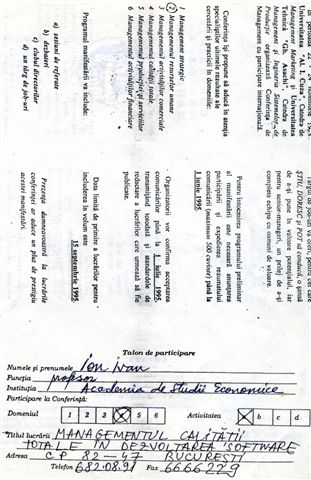 În perioada 22 - 24 noiembrie 1995
Universitatea "Al. I. Cuza", Catedra de
Management-Marketing și Universitatea
Tehnică "Gh. Asachi", Catedra de
Management și Ingineria Sistemelor de
Producție organizează Conferința de
Management cu participare internațională.
Conferința își propune să aducă în atenția
specialiștilor ultimele rezultate ale
cercetării și practicii în domeniile:
1 Management strategic
2 Managementul resurselor umane
3 Managementul activității comerciale
4 Managementul calității totale
5 Managementul producției și serviciilor
6 Managementul activităților financiare
Programul manifestării va include:
a) sesiuni de referate
b) dezbateri
c) clubul directorilor
d) un târg de job-uri
ȘTIU, DORESC și POT să conducă, o șansă
de a-și pune în valoare potențialul, iar
pentru senior-manageri, un prilej de a-și
completa echipa cu oameni de valoare.
Pentru întocmirea programului preliminar
al manifestării este necesară anunțarea
participării și expedierea rezumatului
comunicării (maximum 500 cuvinte) până la
1 iunie 1995.
Organizatorii vor confirma acceptarea
comunicărilor până la 1 iulie 1995,
transmițând totodată și standardele de
redactare a lucrărilor care urmează să fie
publicate.
Data limită de primire a lucrărilor pentru
includerea în volum este
15 septembrie 1995.
Prezența dumneavoastră la lucrările
conferinței ar aduce un plus de prestigiu
acestei manifestări.
Talon de participare
Numele și prenumele Ion Ivan
Funcția profesor
Instituția Academia de Studii Economice
Participare la Conferință:
Domeniul 1 2 3 5 6 Activitatea b c d
Titlul lucrării MANAGEMENTUL CALITĂȚII
TOTALE ÎN DEZVOLTAREA SOFTWARE
Adresa CP 82-47 BUCUREȘTI
Telefon 682.08.91 Fax 6666229